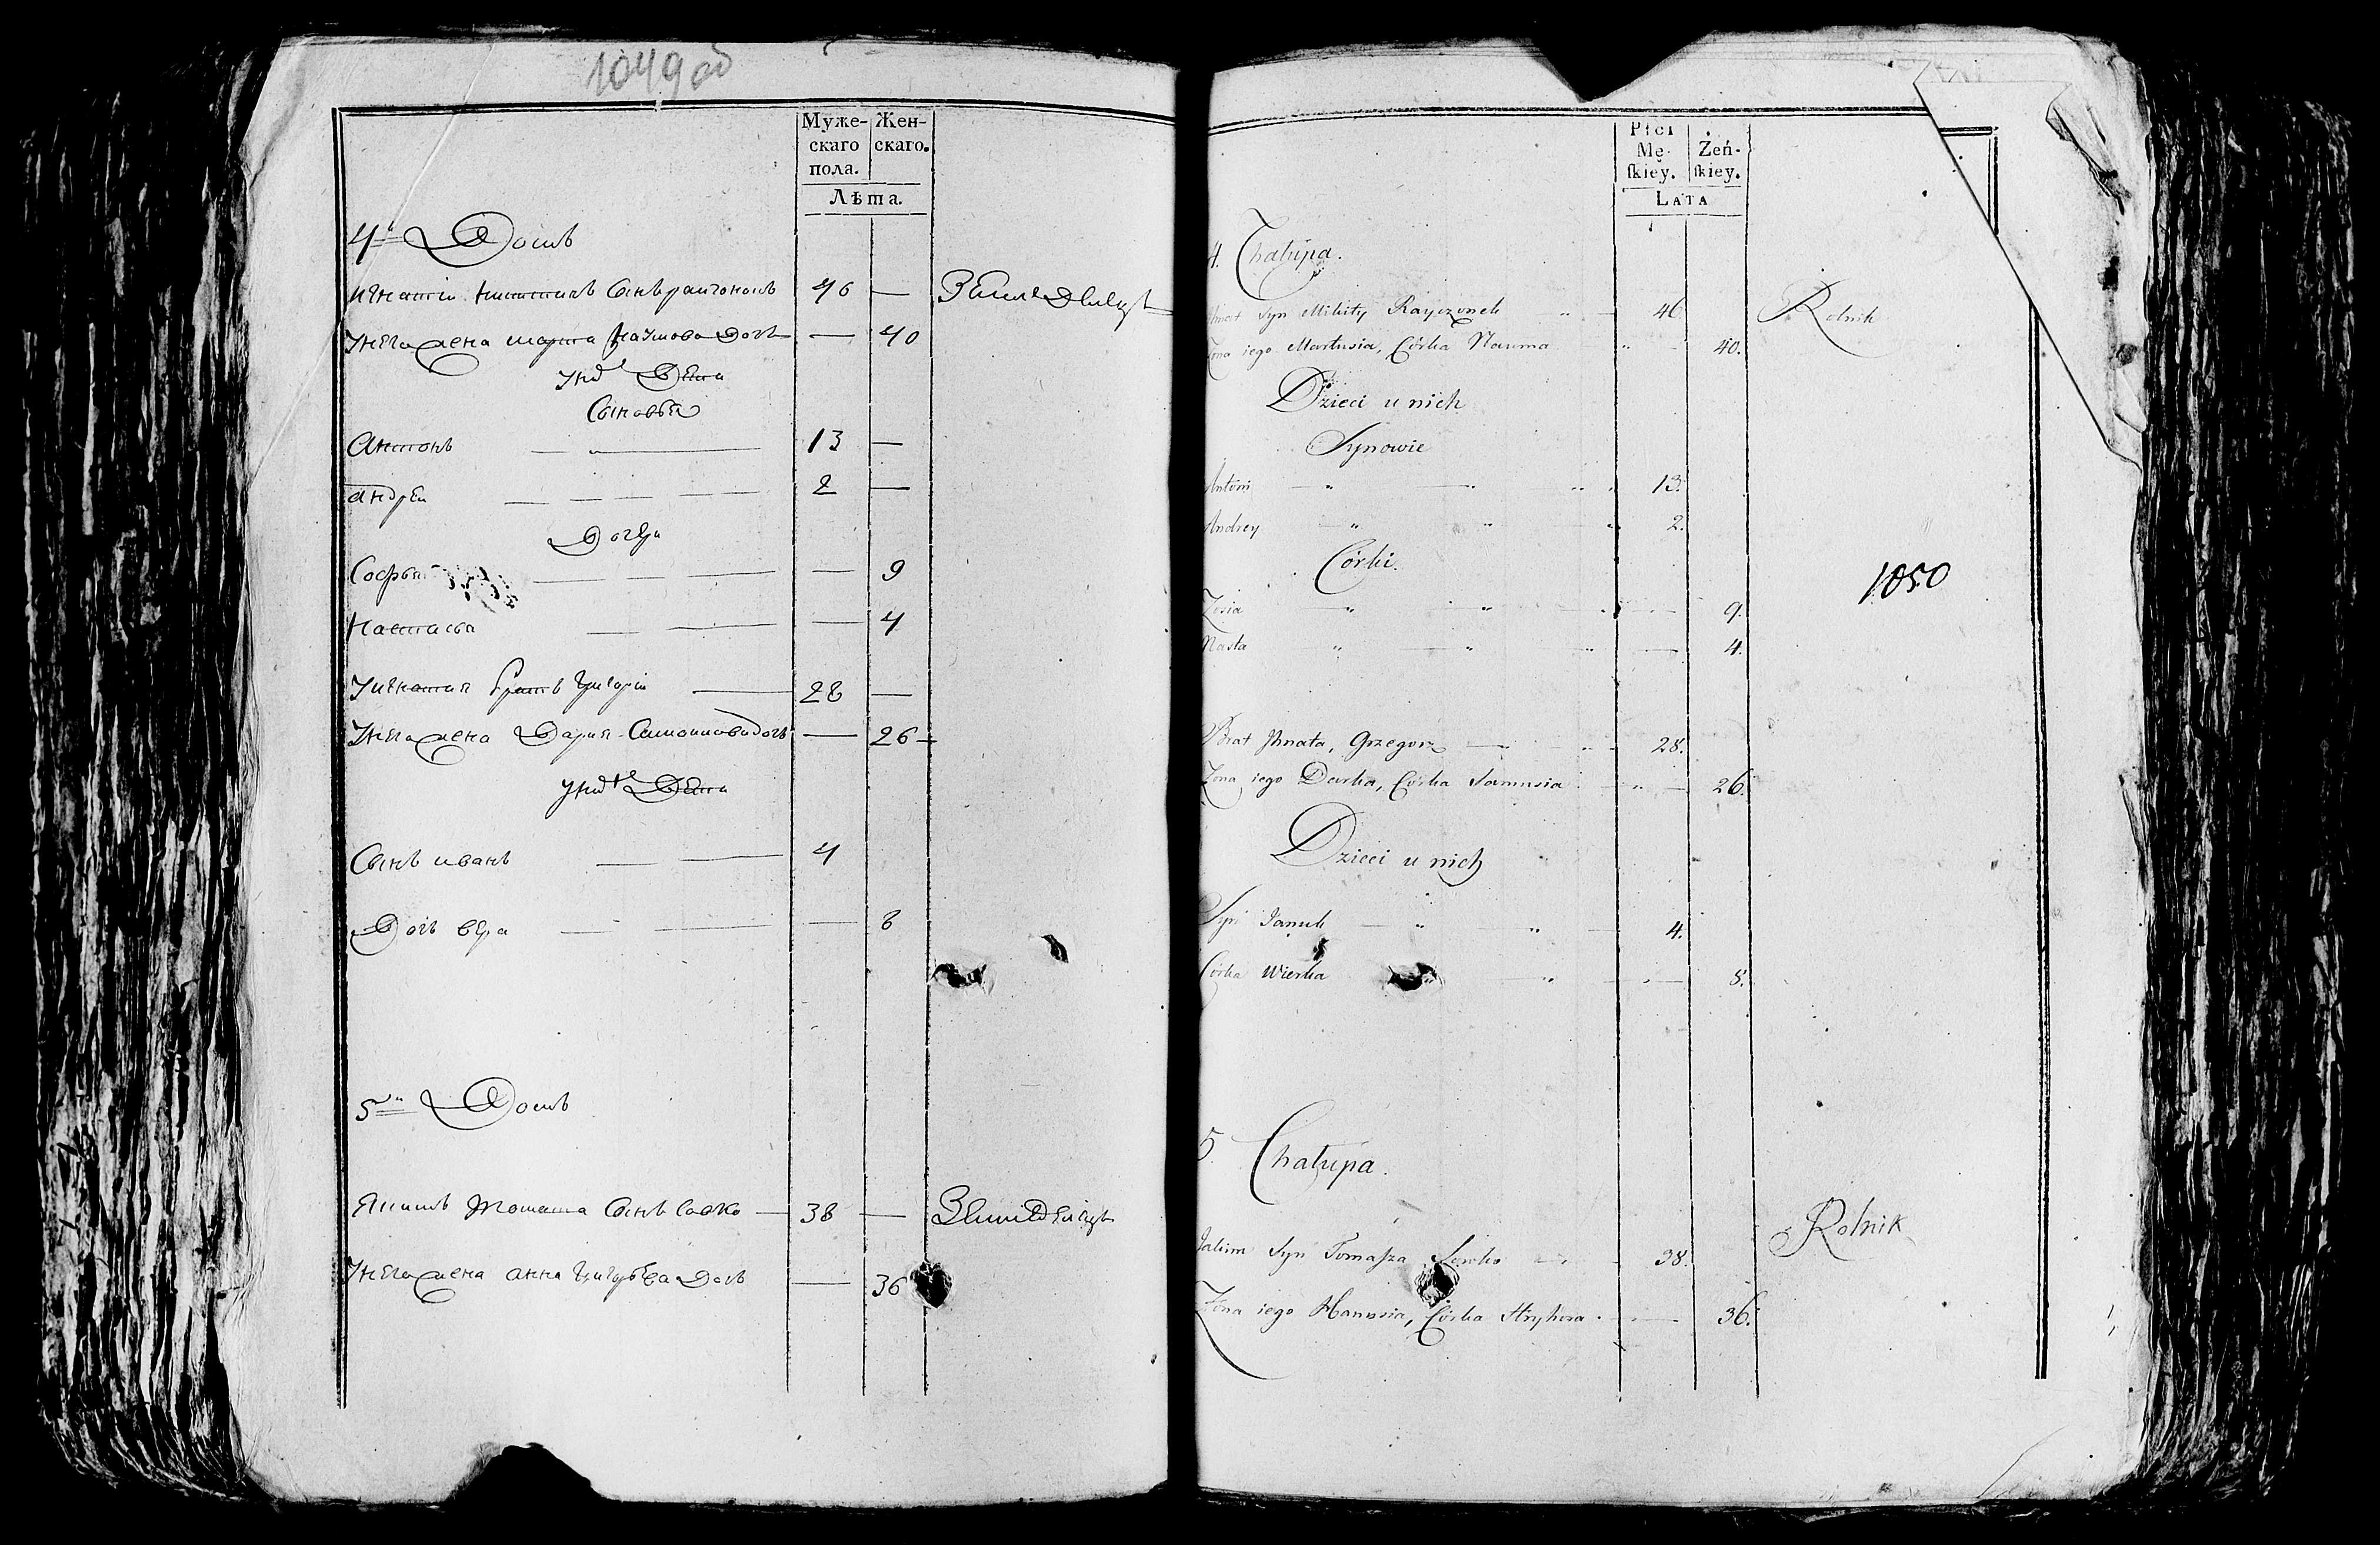 1049 об
Муже-
скаго
пола.
Жен-
скаго.
Лѣта.
4й Домъ
Игнатій Никитинъ Сынъ раичонокъ 46 — Земледелецъ
У него жена марта Наумова Дочь — 40
У них Дети
Сыновья
Антонъ 13 —
андреи 2 —
Дочери
Софья — 9
Настасья — 4
У игнатия братъ григорій 28 —
У него жена Дария Самоилова дочь — 26
У них Дети
Сынъ иванъ 4
Дочь вера — 8
5й Домъ
Якимъ томаша Сынъ Савко 38 — Земледелецъ
У него жена анна григорьева Дочь — 36
Płci
Mę-
ſkiey.
Żeń-
ſkiey.
LATA
4. Chałupa.
Syn Mikity Rayczonek 46 Rolnik
Żona iego Martusia, Córka Nauma 40.
Dzieci u nich
Synowie
Antoni 13.
Andrey 2.
Córki.
Zosia 9.
Nasta 4.
1050
Brat Ihnata, Grzegorz 28.
Żona iego Darka, Córka Samusia 26.
Dzieci u nich
Syn Januk 4.
Córka Wierka 8.
5. Chałupa.
Jakim Syn Tomaſza 38. Rolnik
Żona iego Hanusia, Córka Hryhora 36.